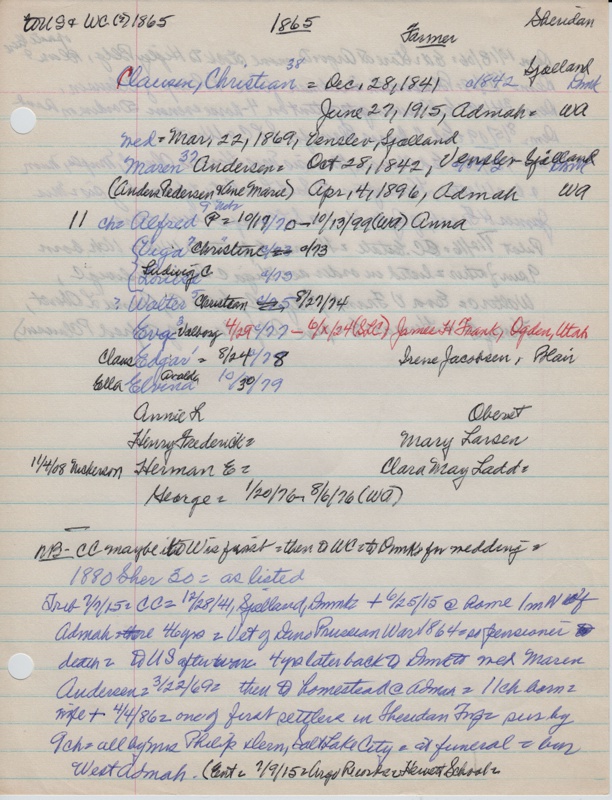 to US & WC (?) 1865 1865 Farmer Sheridan
Clausen, Christian 38 = Dec. 28, 1841 c1842 Sjælland Dmk
June 27, 1915, Admah = WA
wed = Mar, 22, 1869, Venslev, Sjælland
Maren 37 Andersen = Oct 28, 1842, Venslev Sjælland Dmk
(Anders Pedersen & Ane Marie) Apr, 4, 1896, Admah WA
11 ch = Alfred 9 P = 10/17/70 - 10/13/99 (WA) Anna
Christine 9/73
Ludwig C 9/73
? Walter Christian 8/27/74
Eva 3 Valborg 4/29/77 - 6/x/24 (SLC) James H Frank, Ogden, Utah
Claus Edgar = 8/24/78 Irene Jacobsen, Blair
Ella Elvina 10/30/79
Annie L Oberst
Henry Frederick = Mary Larsen
11/4/08 Nickerson Herman E = Clara May Ladd =
George = 1/20/76 - 8/6/76 (WA)
NB - CC maybe to W is first = then to WC = to Dmk for wedding =
1880 Sher 30 = as listed
Trib 7/7/15 = CC = 12/28/41, Sjælland, Dmk + 6/25/15 @ home 1 m N of
Admah = here 46 yrs = Vet of Dano Prussian War 1864 = so pensioner to
death = to US after war 4 yrs later back to Dmk to wed Maren
Andersen = 3/22/69 = then to homestead @ Admah = 11 ch born =
wife + 4/4/86 = one of first settlers in Sheridan Twp = surv by
9 ch = all by Mrs Philip Dern, Salt Lake City = at funeral = bur
West Admah. (Ent = 7/9/15 = Argo